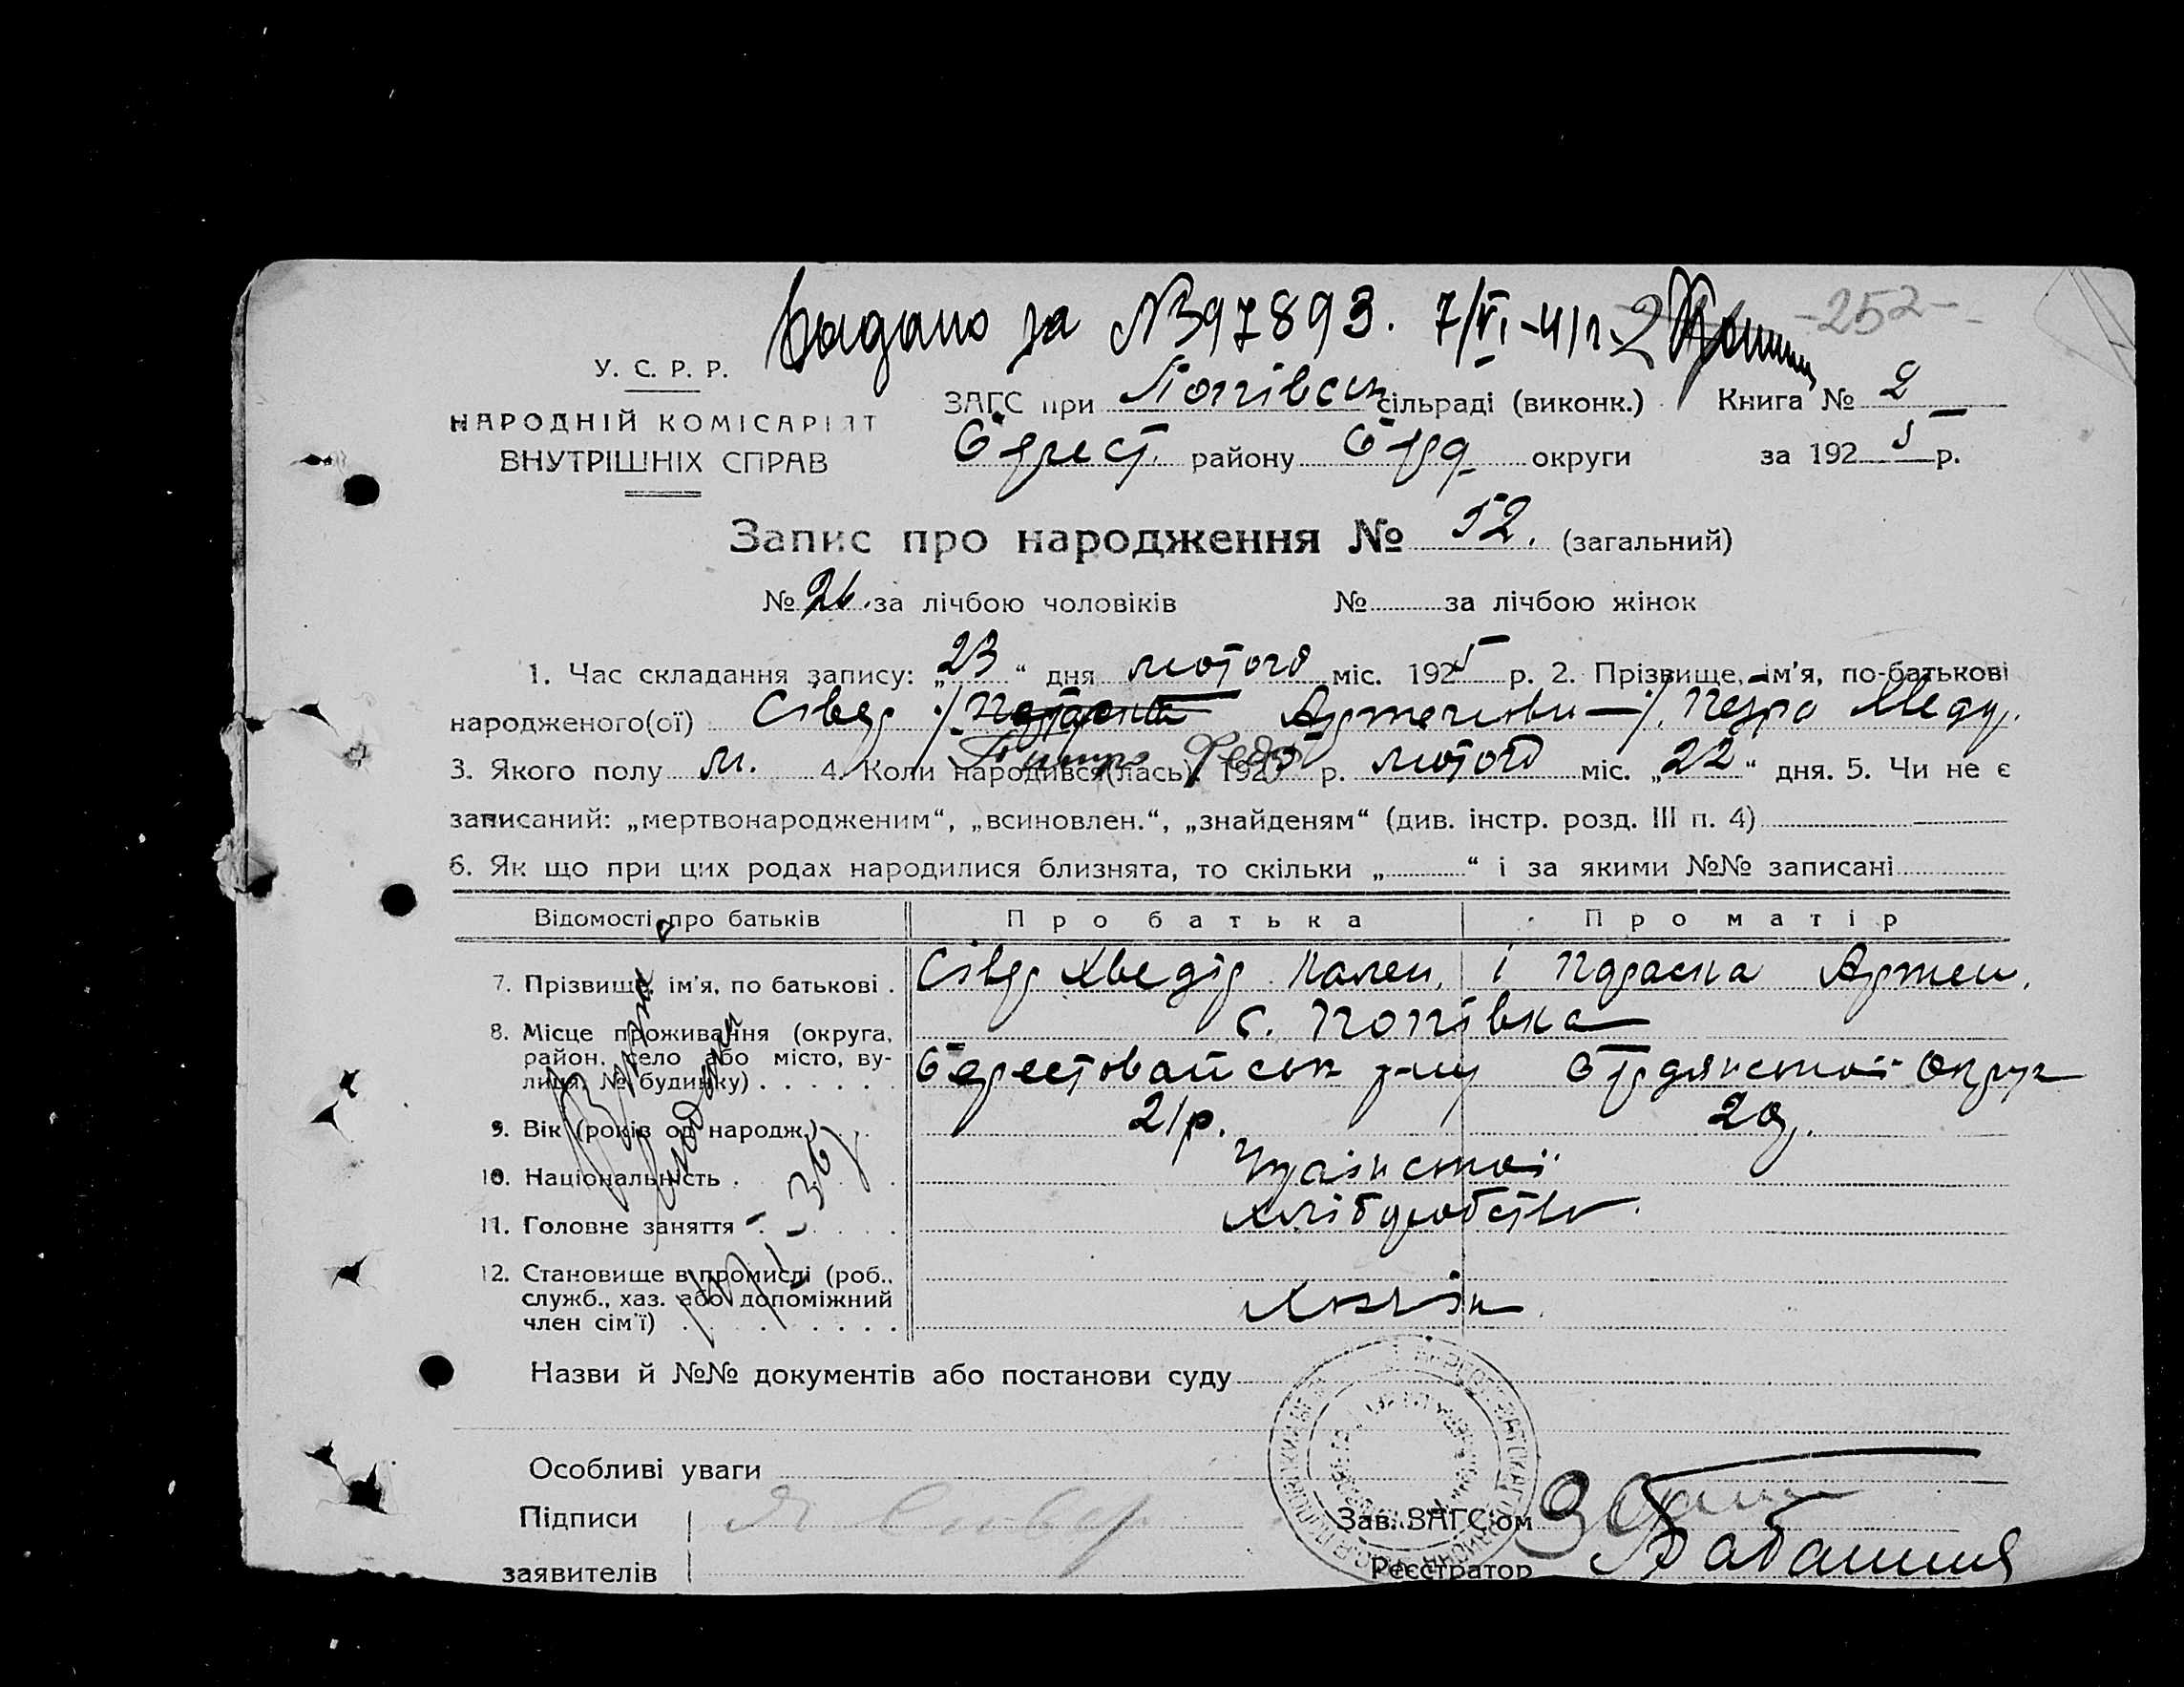 Видано за № 397893. 7/VI-41 р.
-252-
У. С. Р. Р.
НАРОДНІЙ КОМІСАРІЯТ
ВНУТРІШНІХ СПРАВ
ЗАГС при Попівськ сільраді (виконк.) Книга № 2
Берест. району Берд округи за 1925 р.
Запис про народження № 52. (загальний)
№ 26. за лічбою чоловіків № за лічбою жінок
1. Час складання запису: „23“ дня лютого міс. 1925 р. 2. Прізвище, ім'я, по-батькові
народженого(ої) Сівер Артемовни Петро Хведр.
3. Якого полу м. 4. Коли народився(лась) 1925 р. лютого міс. „22“ дня. 5. Чи не є
записаний: „мертвонародженим“, „всиновлен.“, „знайденям“ (див. інстр. розд. III п. 4)
6. Як що при цих родах народилися близнята, то скільки „ “ і за якими №№ записані
Відомості про батьків Про батька Про матір
7. Прізвище, ім'я, по батькові . Сівер Хведір і Параска Артем.
8. Місце проживання (округа, район, село або місто, вулиця, № будинку) с. Попівка
Берестовайськ р-ну Бердянської Округ
9. Вік (років од народж.) 21 р. 20 р.
10. Національність Української
11. Головне заняття хліборобство
12. Становище в промислі (роб., служб., хаз. або допоміжний член сім'ї) Хазяїн
Назви й №№ документів або постанови суду
Особливі уваги
Підписи
заявителів
Зав. ЗАГС'ом
Реєстратор